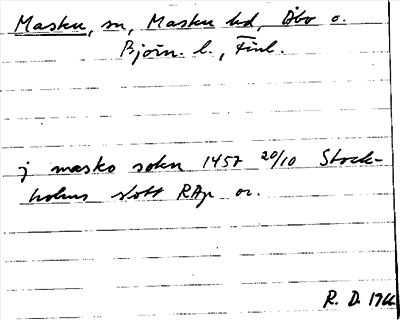 Masku, sn, Masku hd, Åbo o.
Björn. l., Finl.
j masko sokn 1457 20/10 Stock-
holms slott RAp or.
R. D. 1966